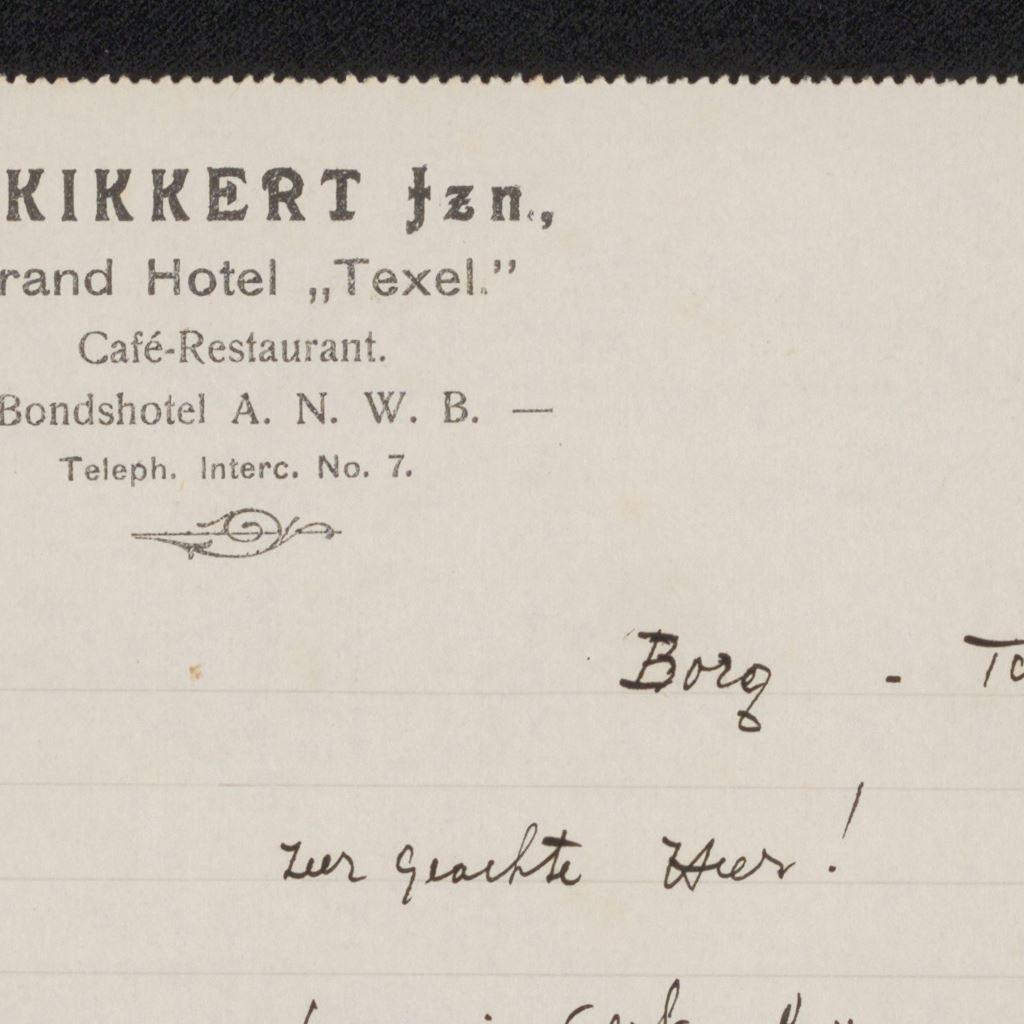 KIKKERT Jzn.,
rand Hotel „Texel.”
Café-Restaurant.
Bondshotel A. N. W. B. —
Teleph. Interc. No. 7.
Borg -
Zeer geachte Heer!